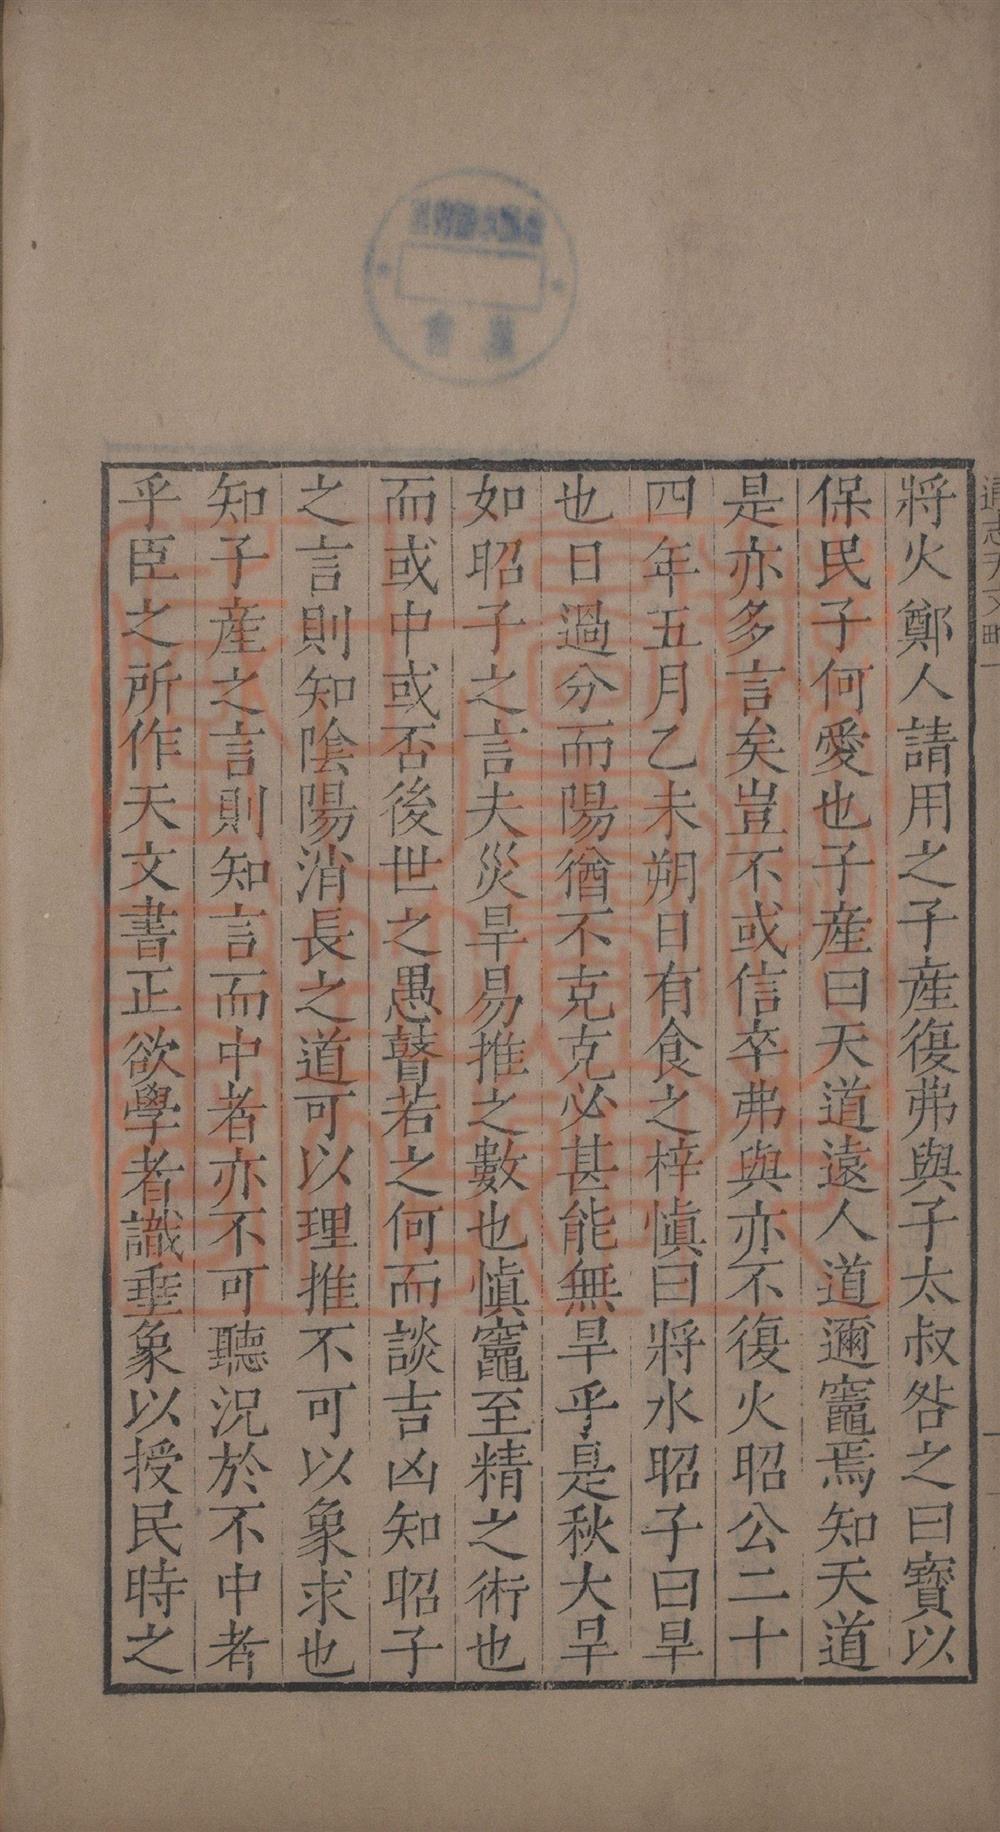 將火鄭人請用之子產復弗與子太叔咎之曰寶以
保民子何愛也子產曰天道遠人道邇竈焉知天道
是亦多言矣豈不或信卒弗與亦不復火昭公二十
四年五月乙未朔日有食之梓慎曰將水昭子曰旱
也日過分而陽猶不克克必甚能無旱乎是秋大旱
如昭子之言夫災旱易推之數也慎竈至精之術也
而或中或否後世之愚瞽若之何而談吉凶知昭子
之言則知陰陽消長之道可以理推不可以象求也
知子產之言則知言而中者亦不可聽況於不中者
乎臣之所作天文書正欲學者識垂象以授民時之